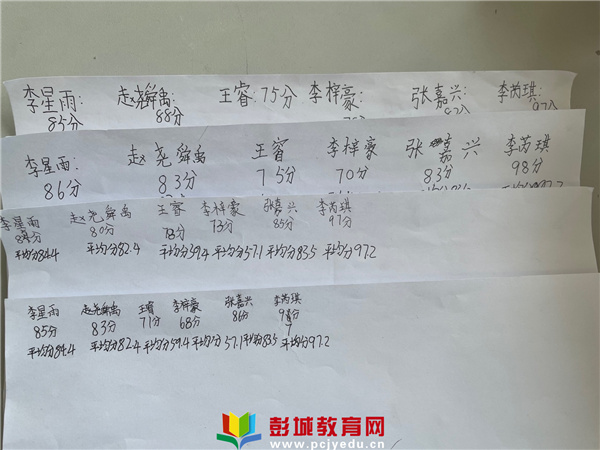 李星雨: 赵尧舜禹: 王睿: 75分 李梓豪: 张嘉兴: 李芮琪:
85分 88分 97分
李星雨: 赵尧舜禹 王睿 李梓豪 张嘉兴 李芮琪
86分 83分 75分 70分 83分 98分
李星雨 赵尧舜禹 王睿 李梓豪 张嘉兴 李芮琪
84分 80分 78分 73分 85分 97分
平均分84.4 平均分82.4 平均分59.4 平均分57.1 平均分83.5 平均分97.2
李星雨 赵尧舜禹 王睿 李梓豪 张嘉兴 李芮琪
85分 83分 71分 68分 86分 98分
平均分84.4 平均分82.4 平均分59.4 平均分57.1 平均分83.5 平均分97.2
彭城教育网
www.pcjyedu.cn